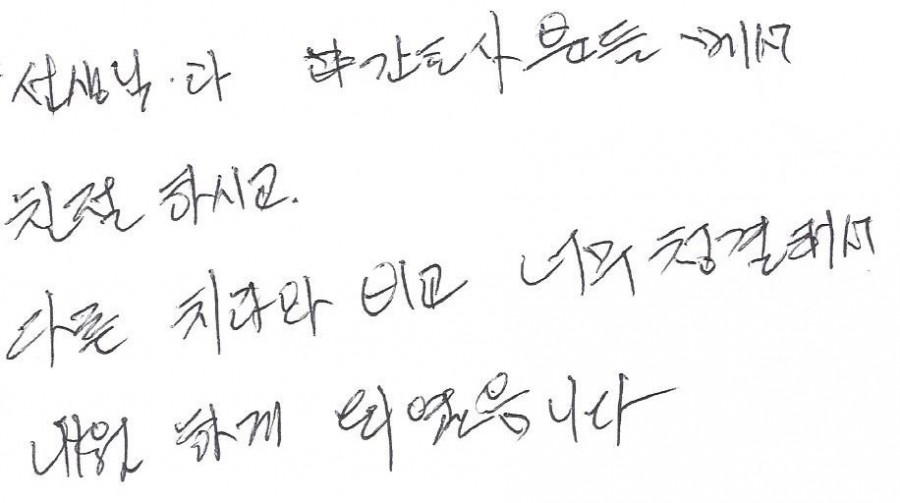 선생님·다 간호사분들 께서
친절 하시고.
다른 치과와 비교 너무 청결해서
내원 하게 되였읍니다